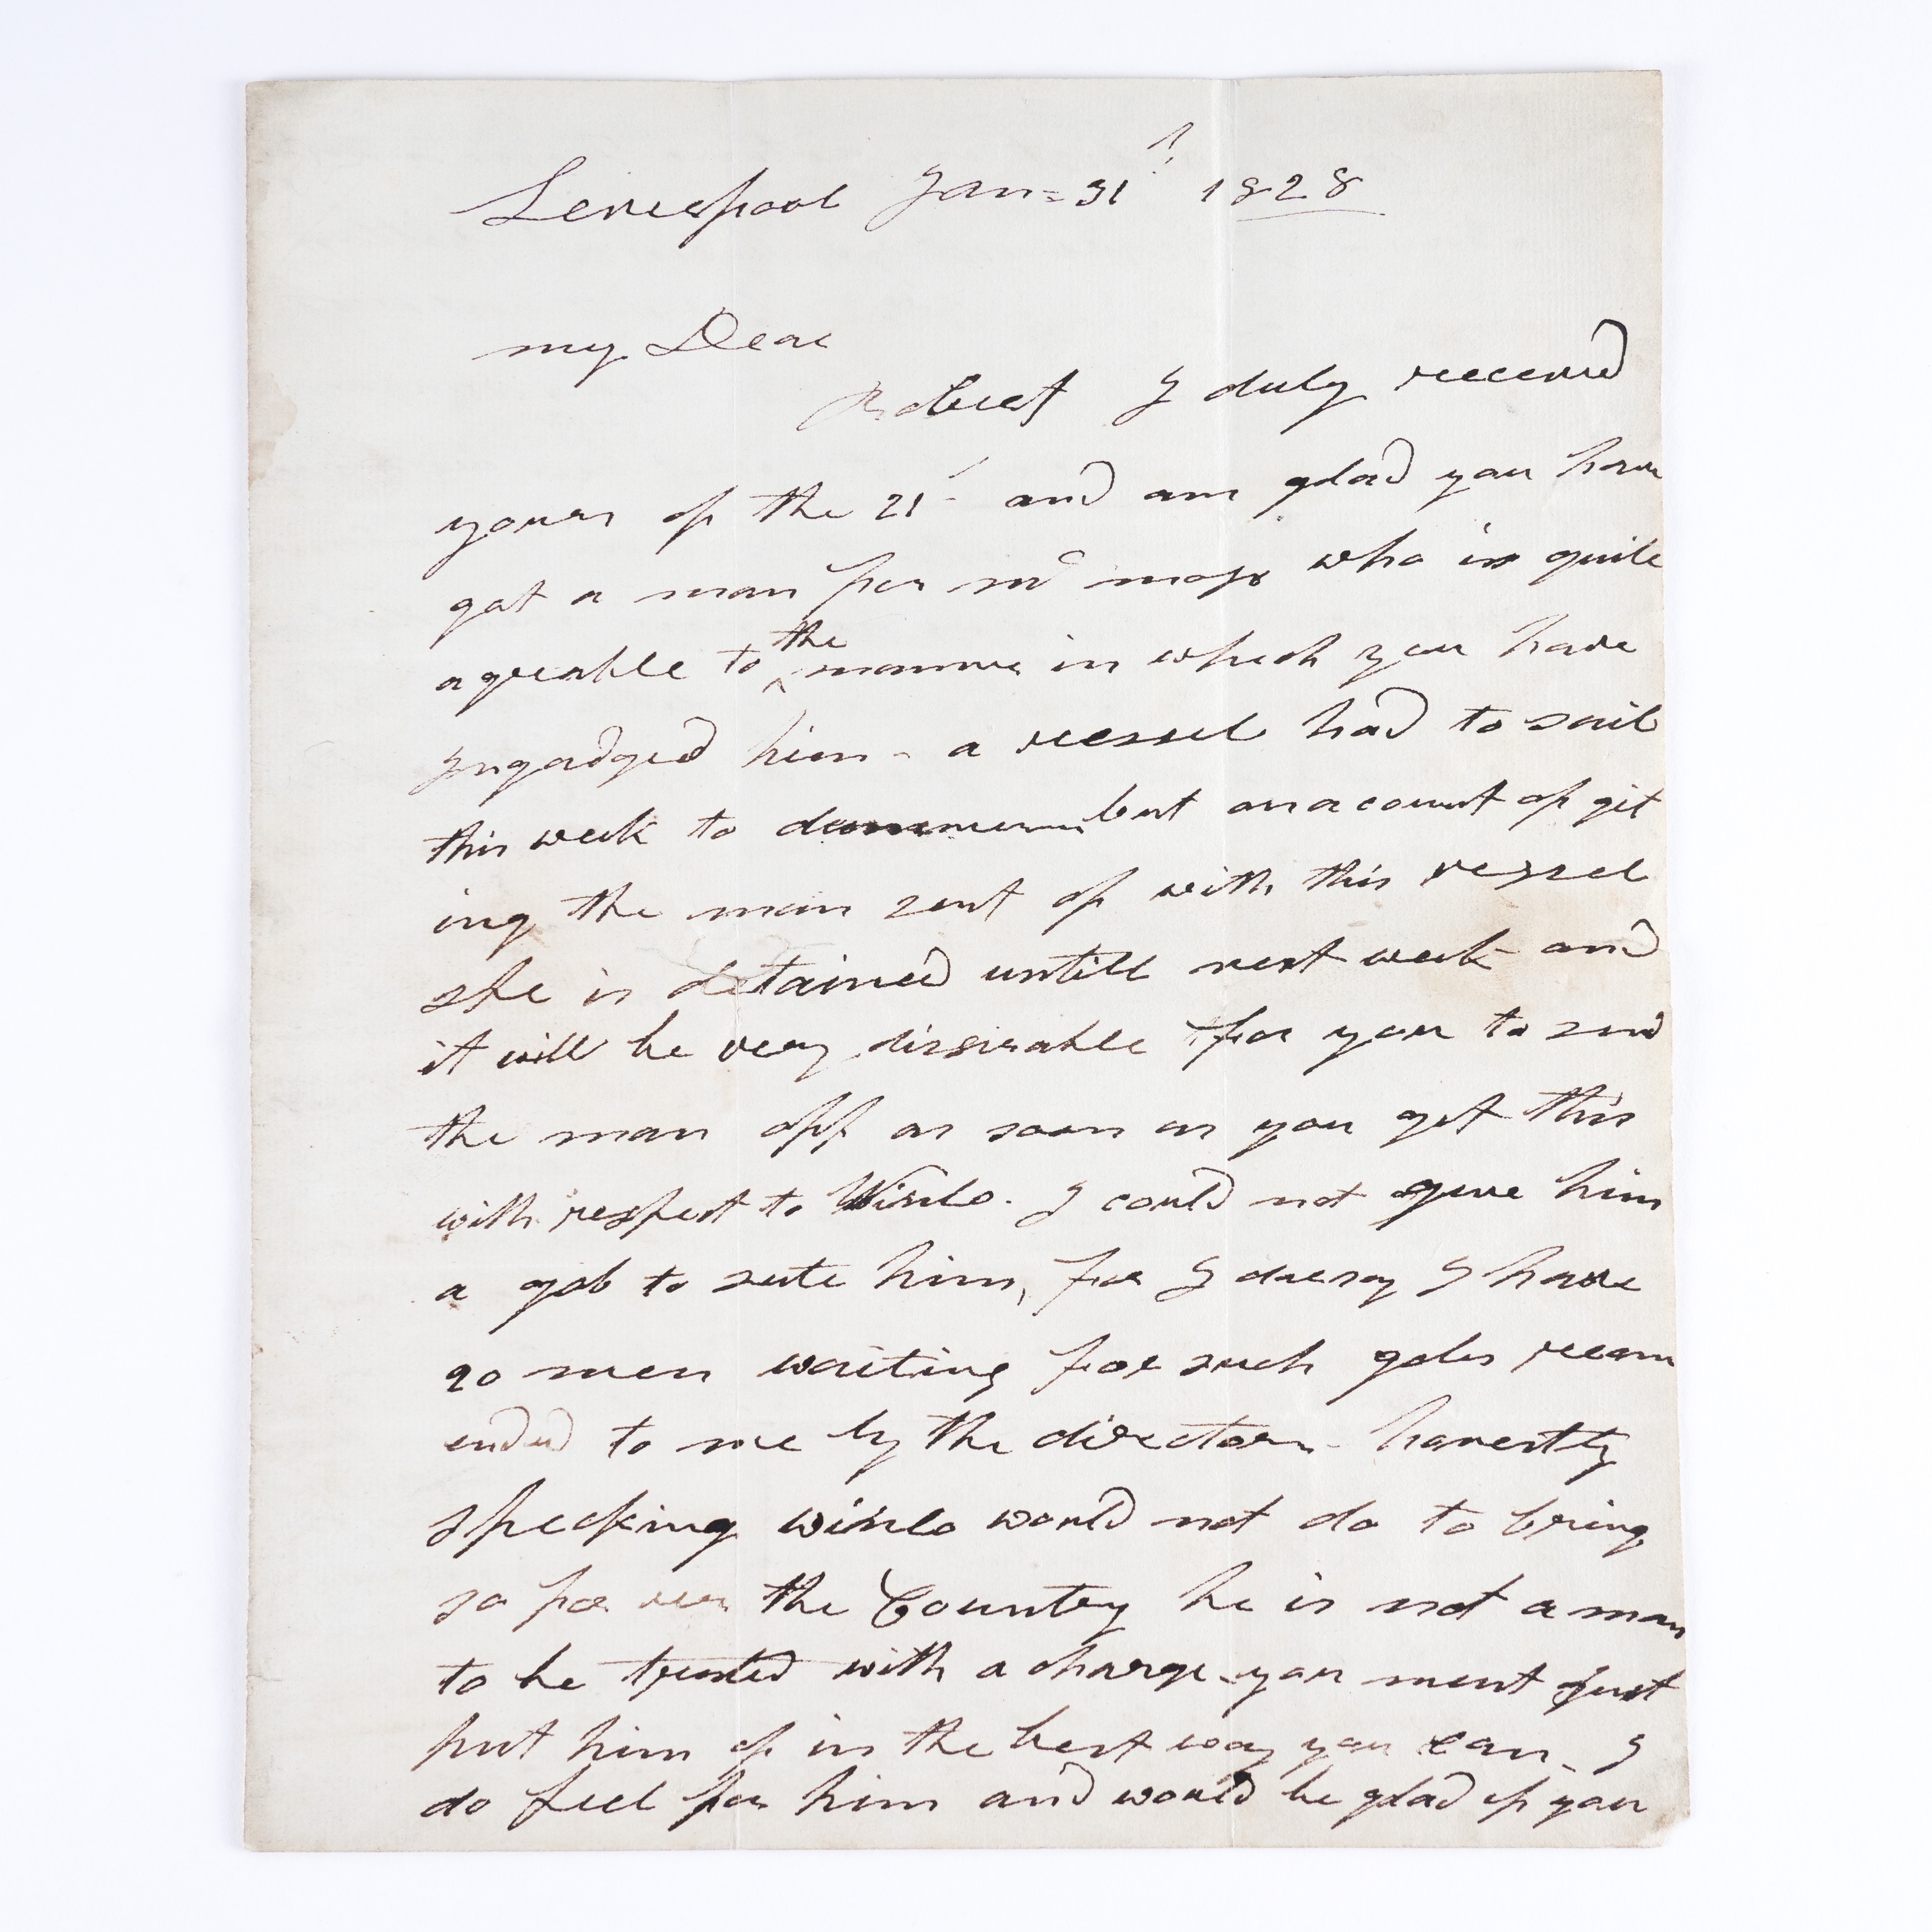 Leverpool Jan= 31 1828
my Dear
Robert I duly received
yours of the 21 and am glad you have
got a man for mr moss who is quite
agreable to the manner in which you have
Ingadged him - a vessel had to sail
this week to but on acount of git
ing the man sent of with this vessel
she is detained untill next week and
it will be very dissirable for you to send
the man off as soon as you get this
with respect to Winlo. I could not give him
a gob to sute him, for I daresay I have
20 men waiting for such gobs recom
ended to me by the directors - honestly
specking winlo would not do to bring
so far the Country he is not a man
to be trusted with a charge - you must just
put him of in the best way you can - I
do feel for him and would be glad if you